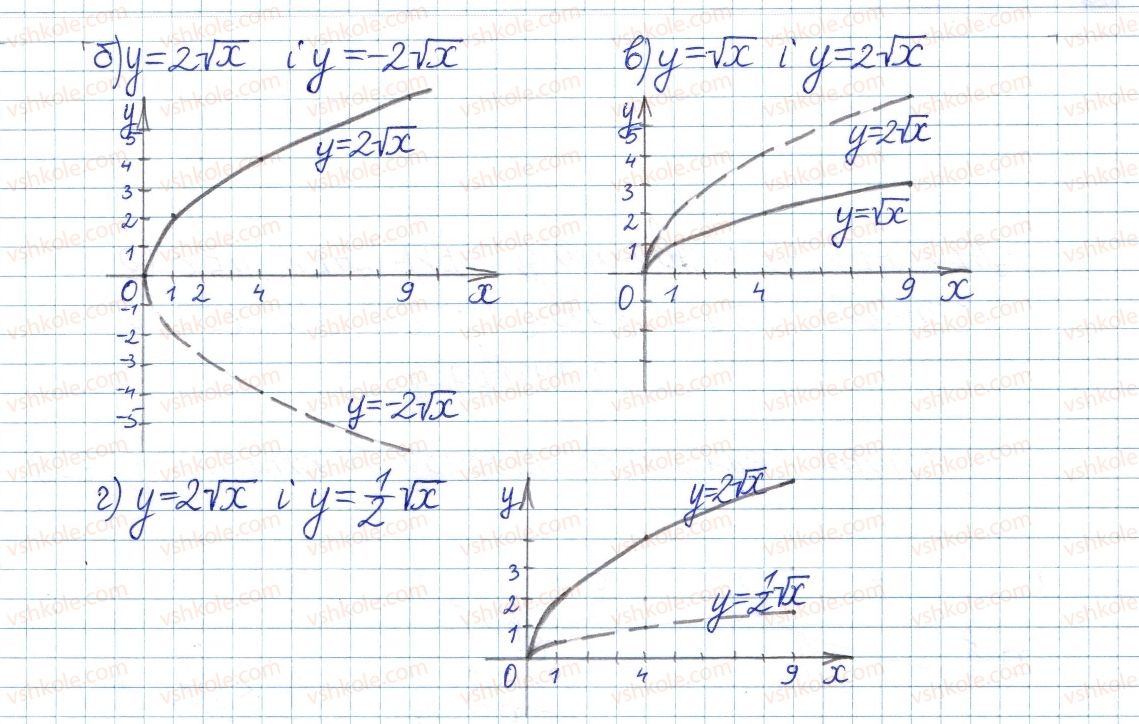 б) y=2√x і y=-2√x
y
5
4
3
2
1
0 1 2 4 9 x
-1
-2
-3
-4
-5
y=2√x
y=-2√x
в) y=√x і y=2√x
y
5
4
3
2
1
0 1 4 9 x
y=2√x
y=√x
г) y=2√x і y=1/2√x
y
3
2
1
0 1 4 9 x
y=2√x
y=1/2√x
vshkole.com